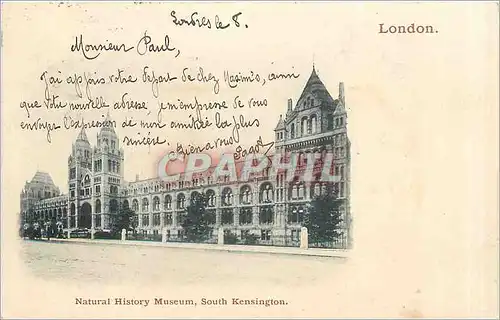 Londres le 8.
London.
Monsieur Paul,
J'ai appris votre départ de chez Maxim's, ainsi
que votre nouvelle adresse, je m'empresse de vous
envoyer l'expression de mon amitié la plus
sincère.
Bien à vous
CPARAMA
Natural History Museum, South Kensington.